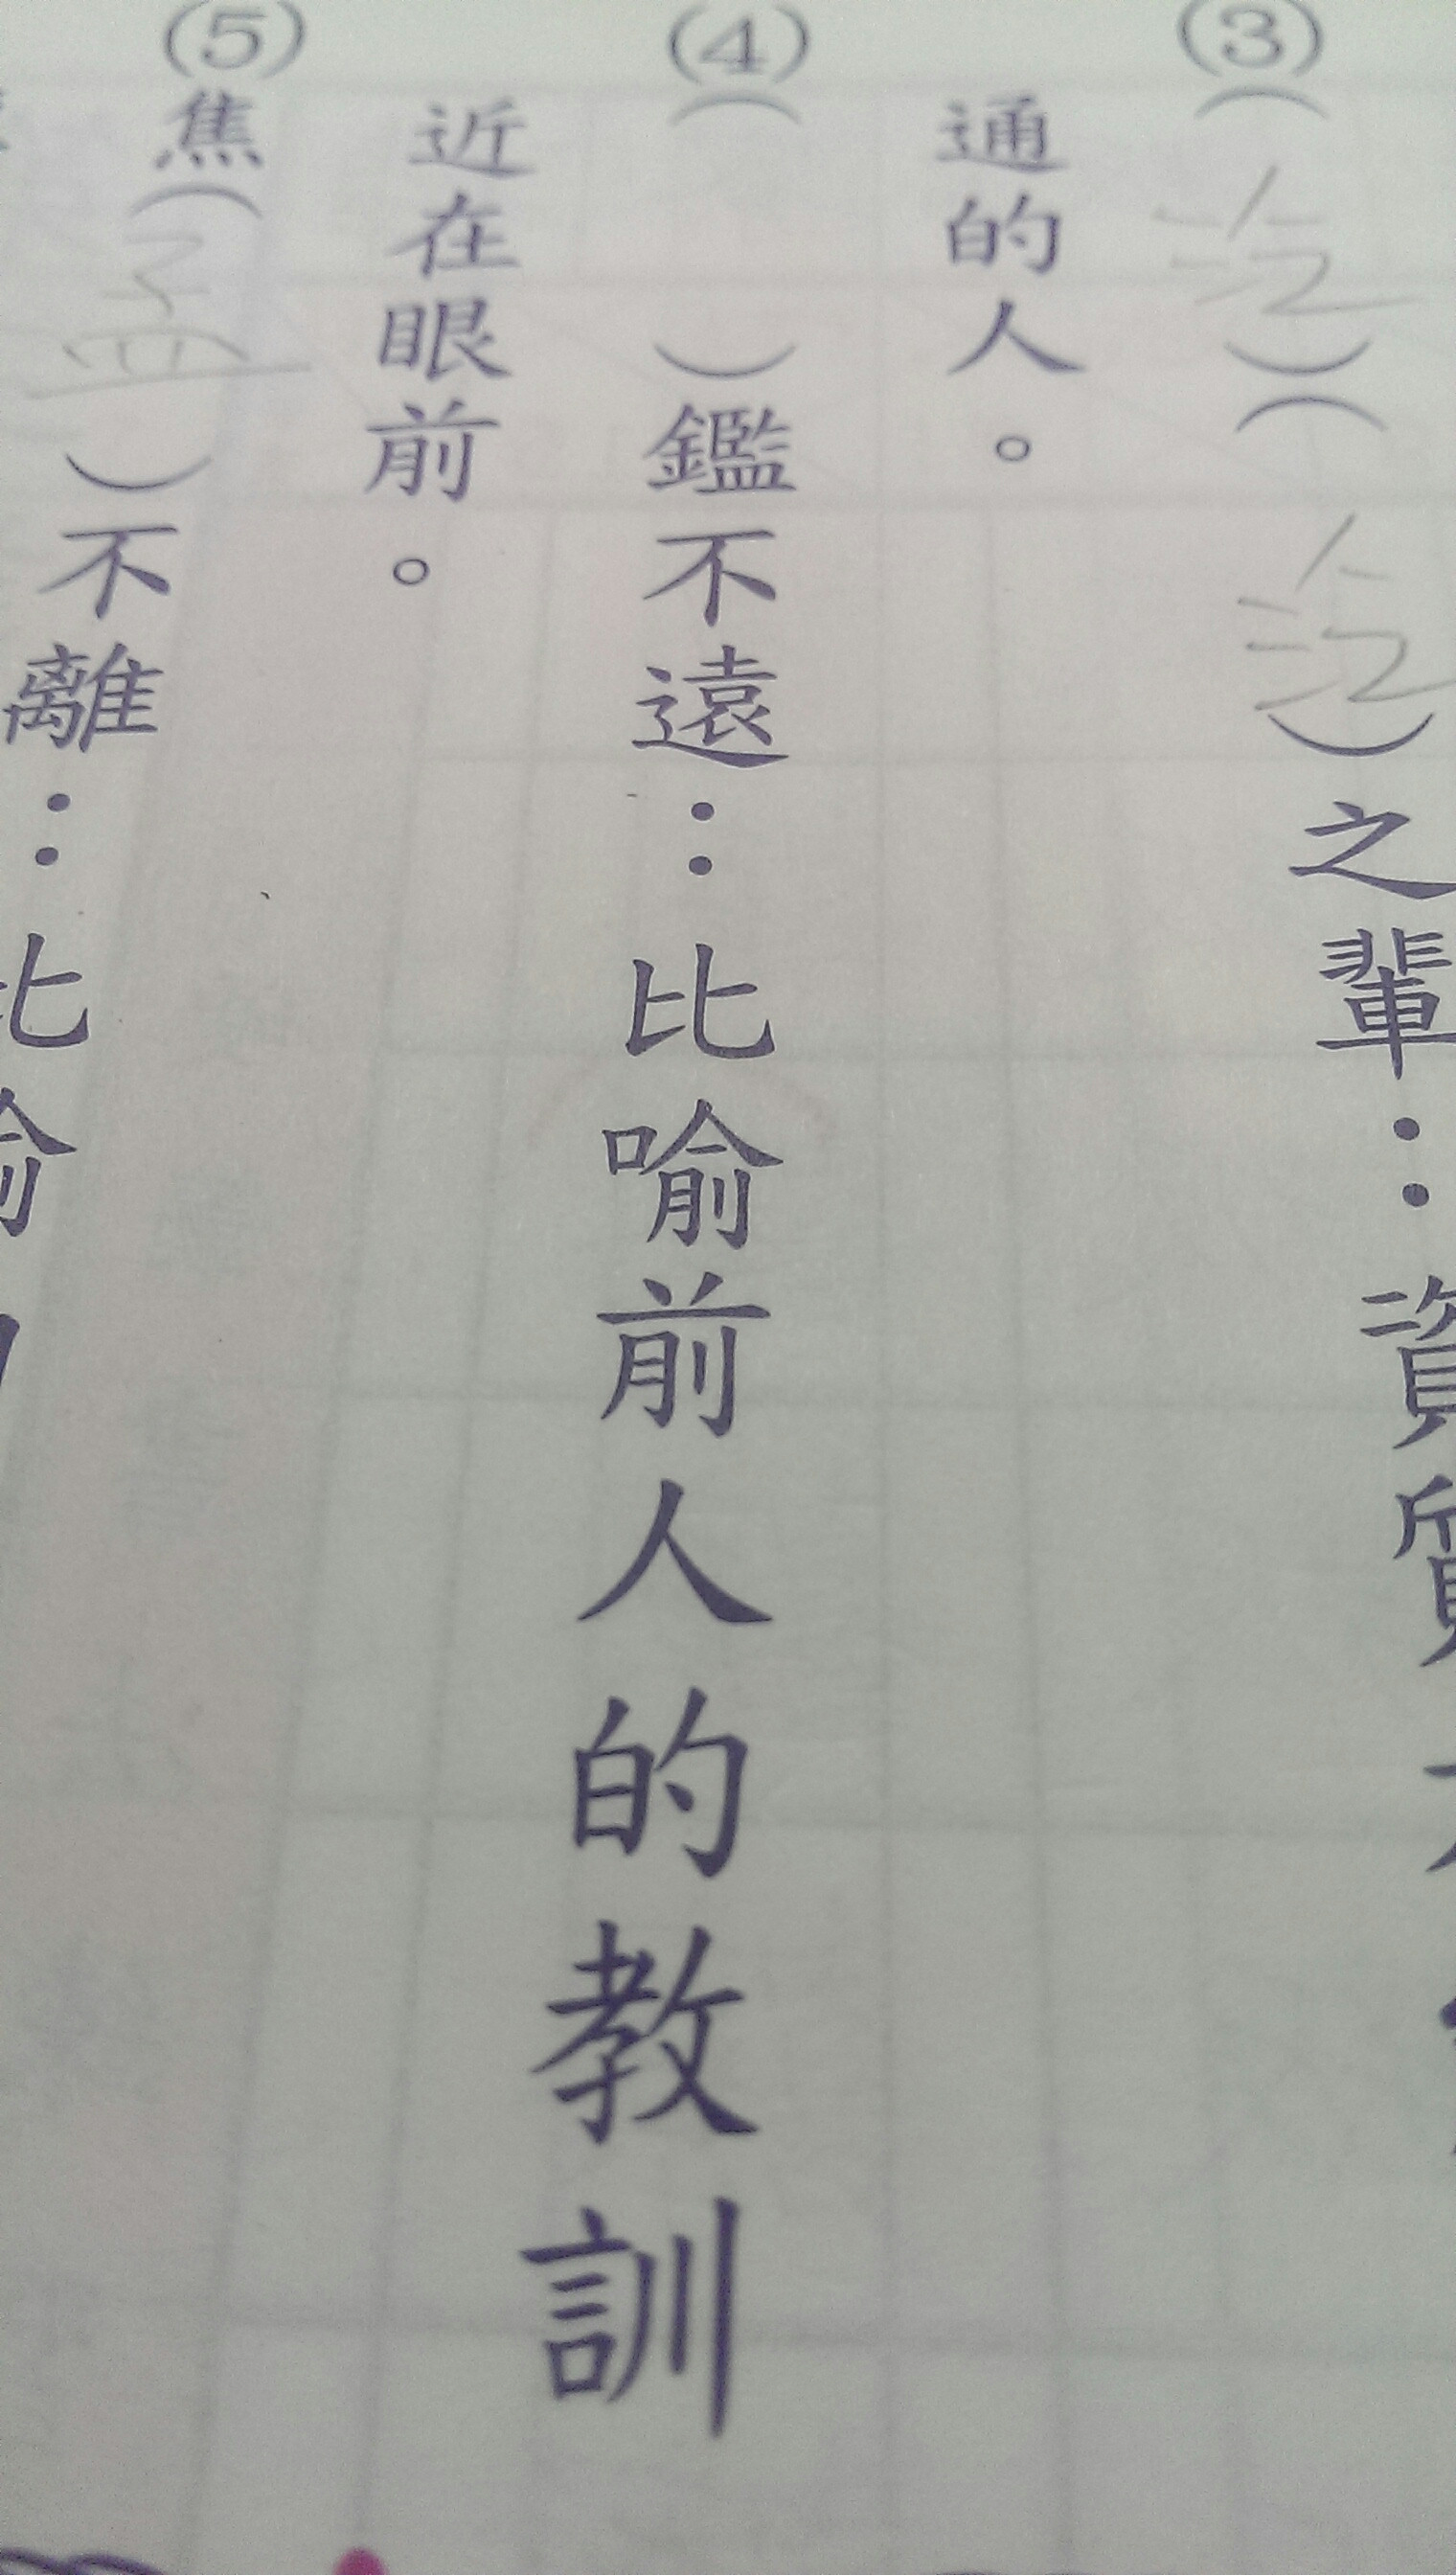 (3)(泛)(泛)之輩：資質
通的人。
(4)(　)鑑不遠：比喻前人的教訓
近在眼前。
(5)焦(孟)不離：比喻